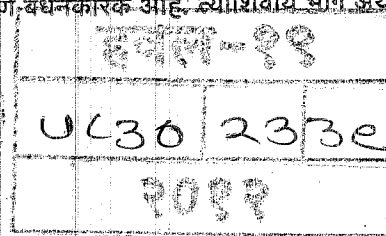 बंधनकारक आहे. त्याशिवाय
हवल-११
५८३० २३
२०१२